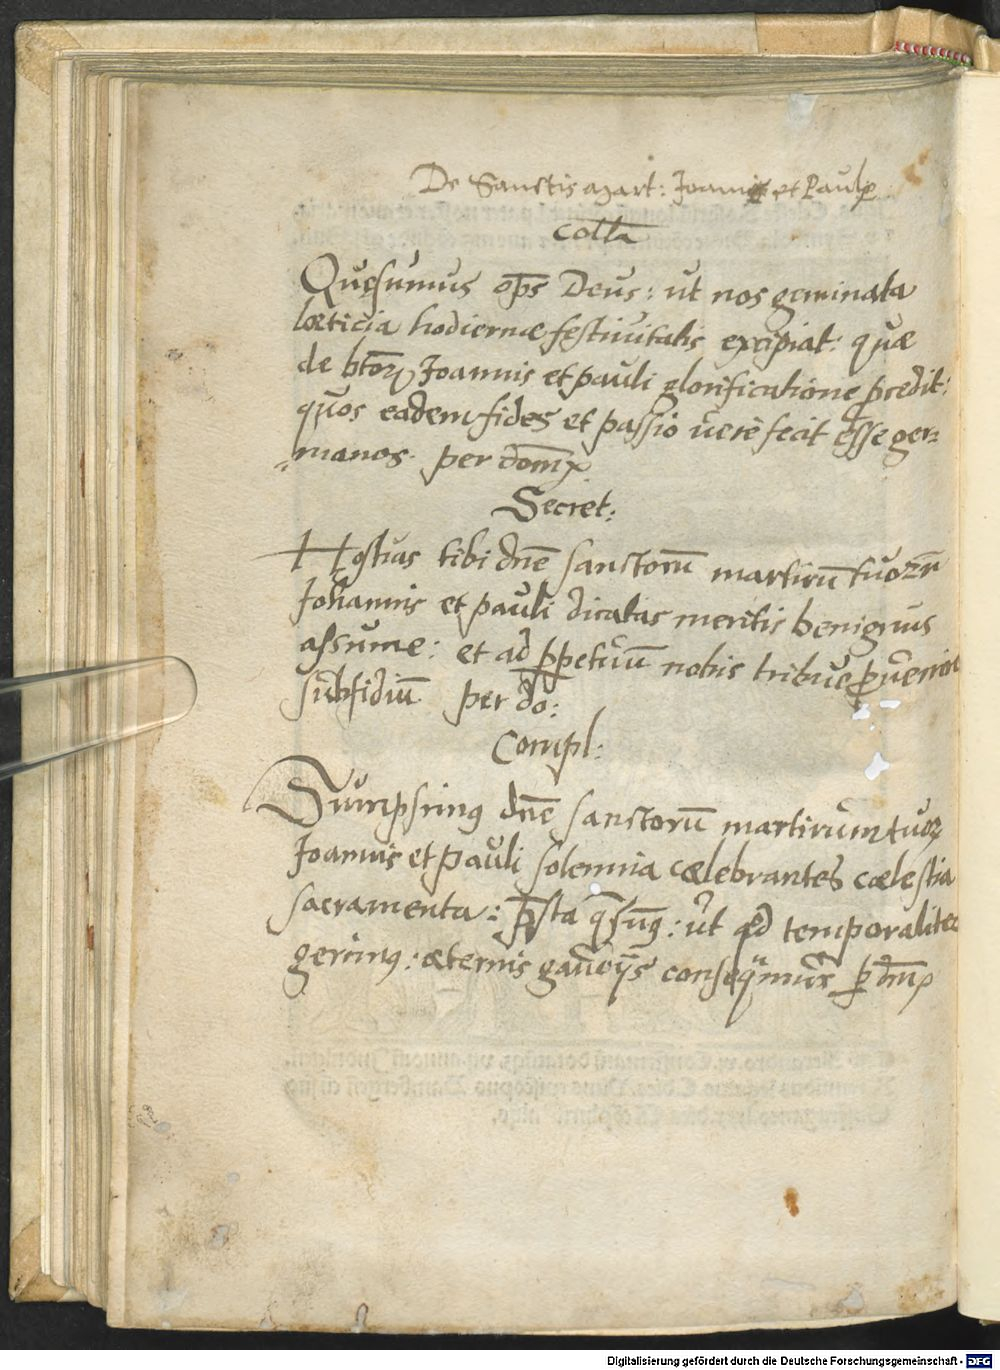 De Sanctis mart: Joannis et Pauli
Coll̄a
Quęsumus op̄s Deus: ut nos geminata
læticia hodiernæ festiuitatis excipiat: quæ
de btōrꝝ Joannis et pauli glorificatione ꝓcedit:
quos eadem fides et passio uerè fecit esse ger=
manos. per domꝝ
Secret:
Hostias tibi dn̄e sanctorū martirū tuoꝝ
Johannis et pauli dicatas meritis benignus
assume: et ad ꝑpetuū nobis tribue ꝓuenire
subsidiū per do:
Compl:
Sumpsimꝰ dn̄e sanctorū martirum tuoꝝ
Joannis et pauli solemnia cælebrantes cælestia
sacramenta: p̄sta q̄sumꝰ: ut qd temporaliter
gerimꝰ: æternis gaudijs conseqͣmur ꝑ dm̄
Digitalisierung gefördert durch die Deutsche Forschungsgemeinschaft - DFG